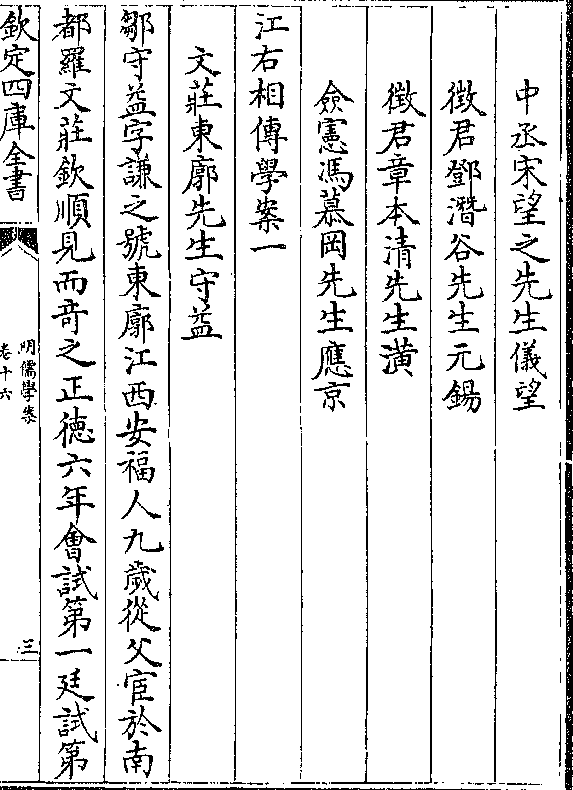 中丞宋望之先生儀望
徵君鄧潛谷先生元錫
徵君章本清先生潢
僉憲馮慕岡先生應京
江右相傳學案一
文莊東廓先生守益
鄒守益字謙之號東廓江西安福人九歲從父宦於南
都羅文莊欽順見而竒之正徳六年會試第一廷試第
欽定四庫全書
明儒學案
卷十六
三